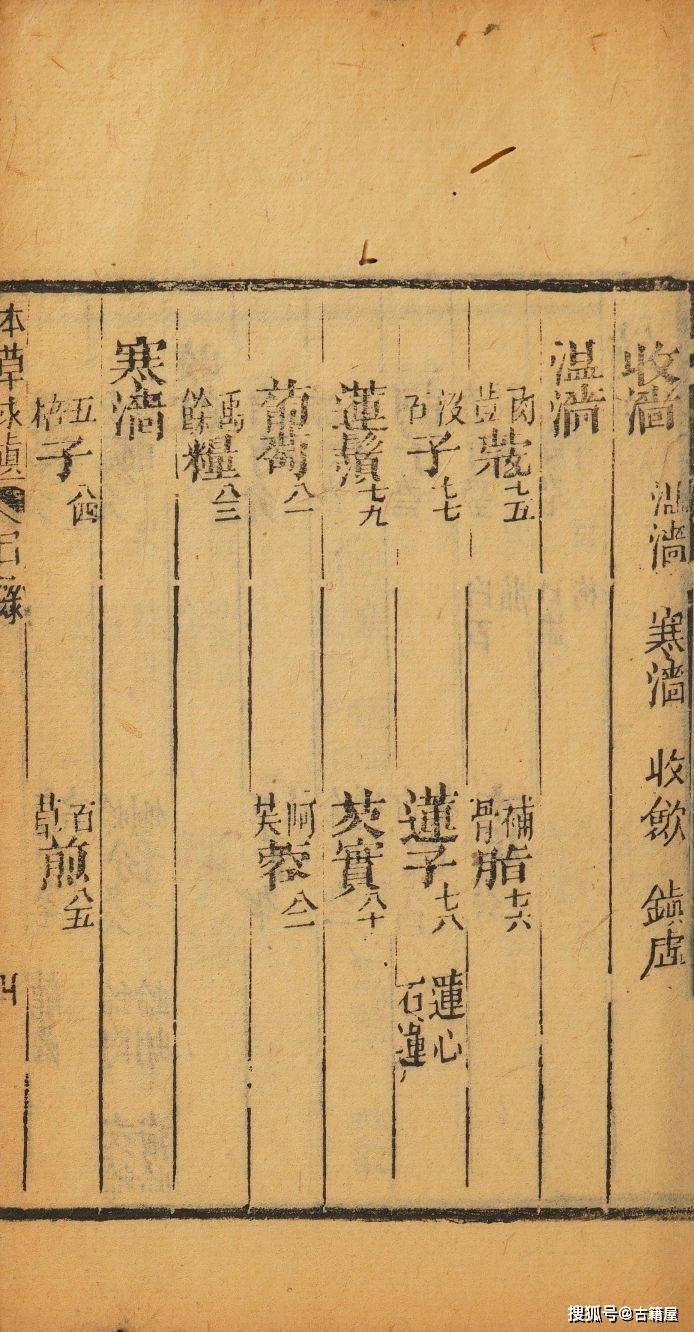 收濇 温濇 寒濇 收歛 鎮虛
温濇
肉荳蔻七五 補骨脂七六
沒石子七七 蓮子七八 蓮心 石蓮
蓮鬚七九 芡實八十
葡萄八一 阿芙蓉八二
禹餘糧八三
寒濇
五棓子八四 百草煎八五
本草求真 目錄
搜狐号@古籍屋